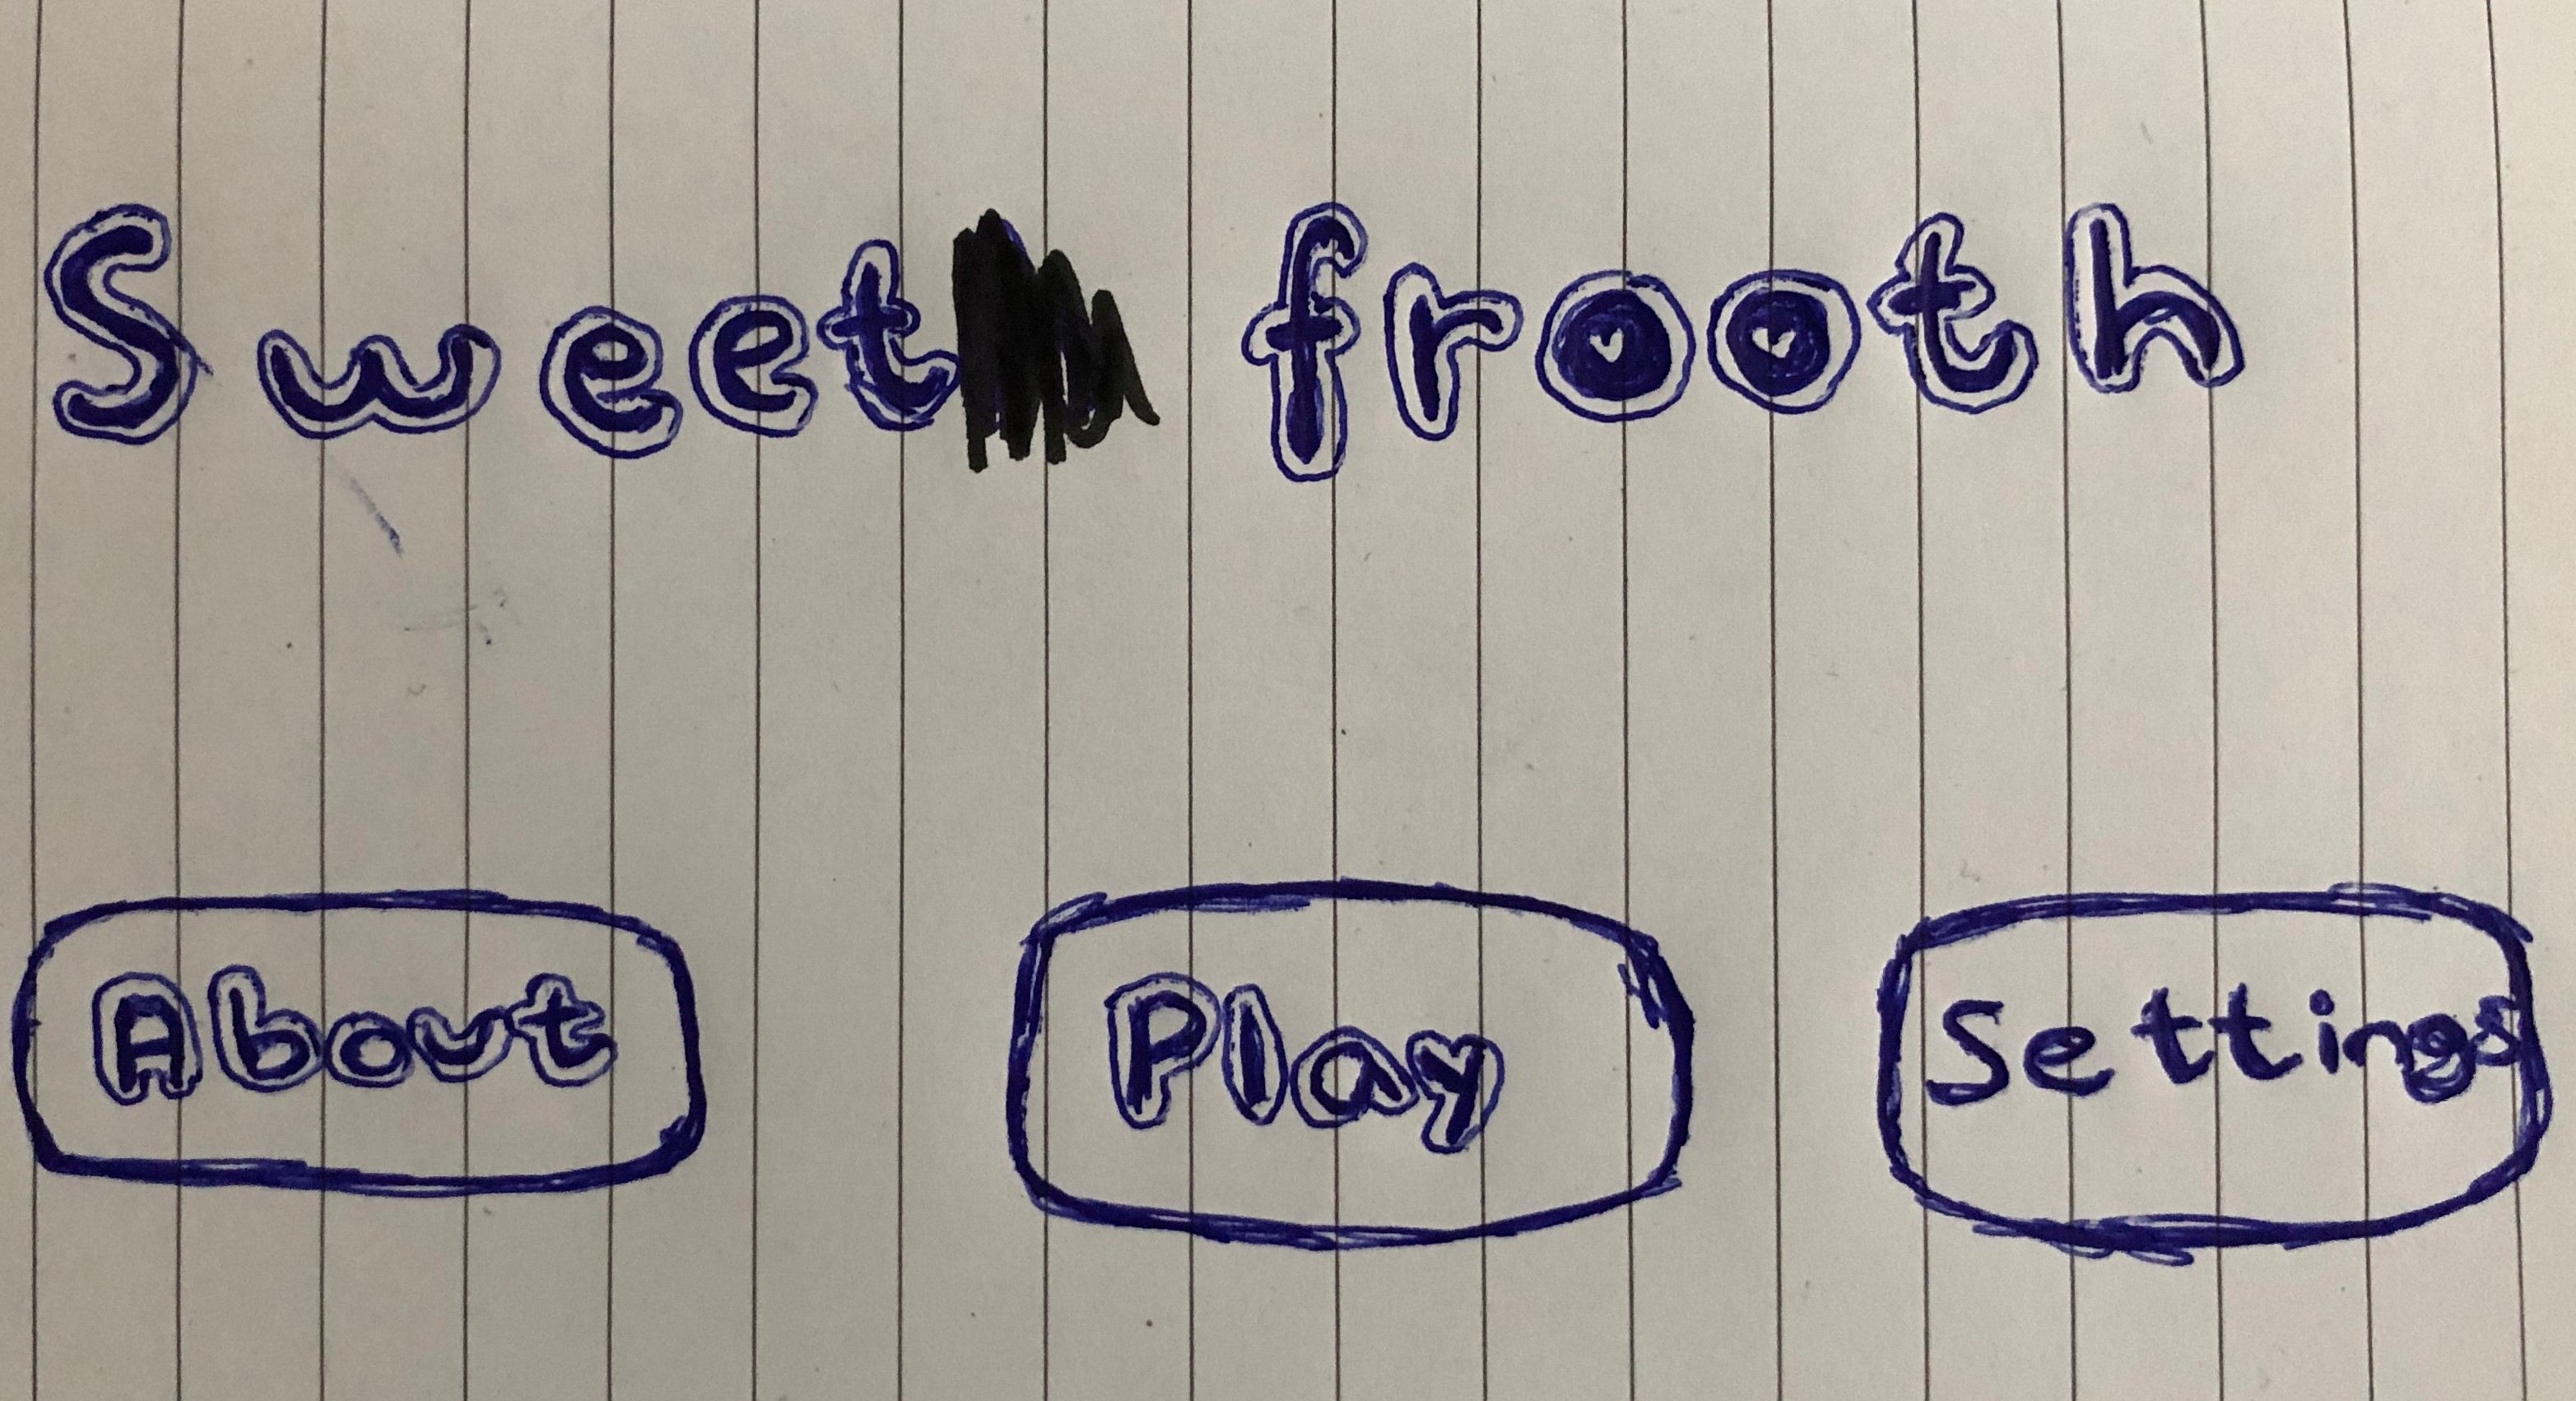 Sweet frooth
About Play Settings